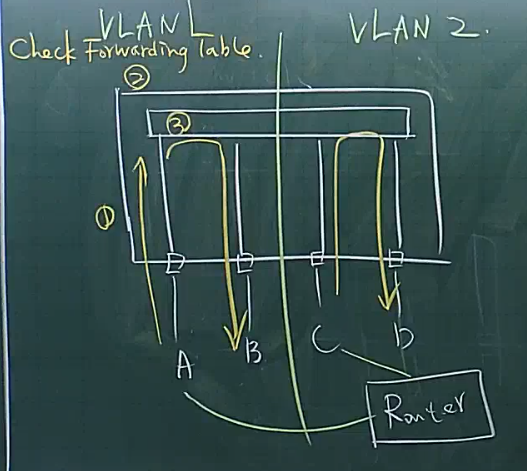 VLAN 1
VLAN 2.
Check Forwarding Table.
②
③
①
A
B
C
D
Router